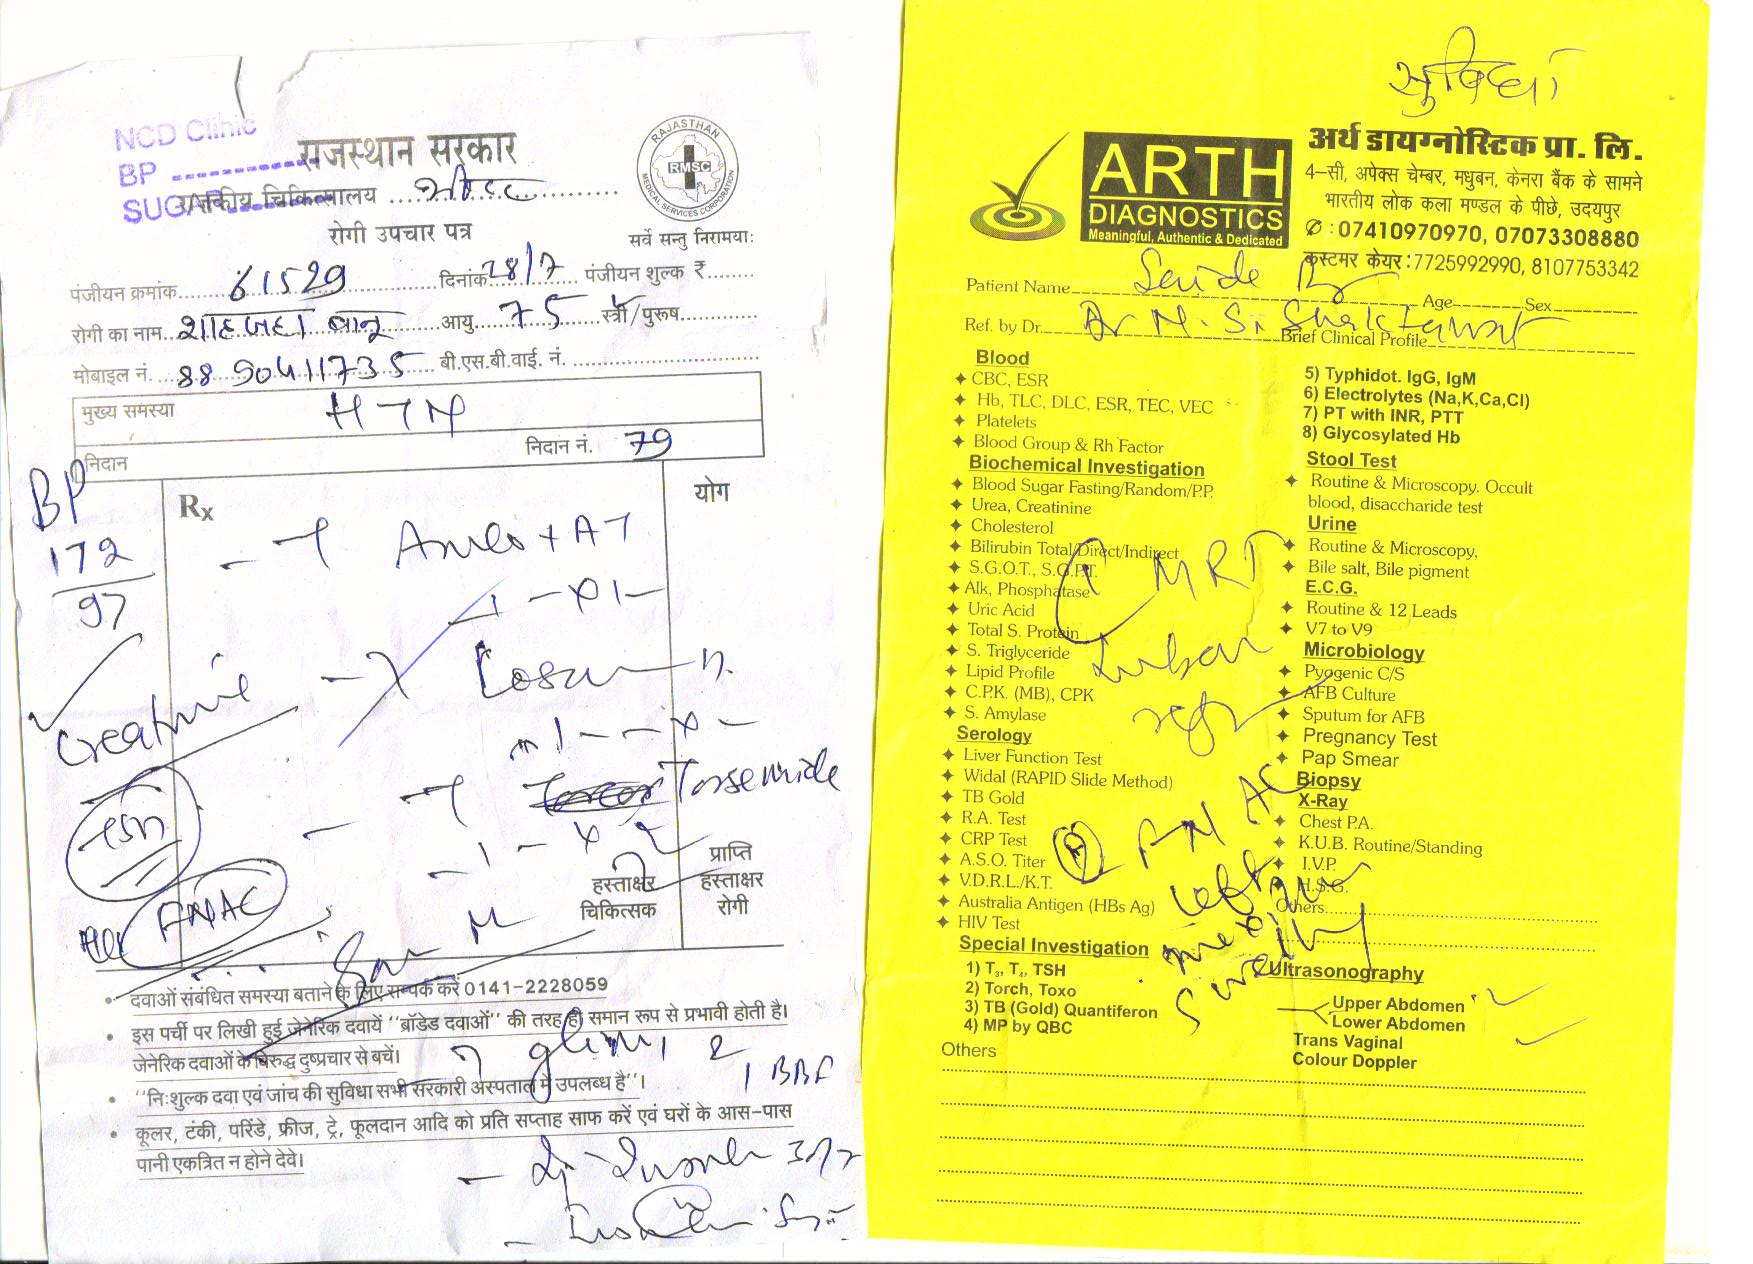 NCD Clinic
BP ----------
SUGAR ----------
राजस्थान सरकार
राजकीय चिकित्सालय
रोगी उपचार पत्र
RAJASTHAN
RMSC
MEDICAL SERVICES CORPORATION
सर्वे सन्तु निरामयाः
पंजीयन क्रमांक 61529 दिनांक 28/7 पंजीयन शुल्क ₹
रोगी का नाम शाहजहां बानू आयु 75 स्त्री/पुरूष
मोबाइल नं. 8890411735 बी.एस.बी.वाई. नं.
मुख्य समस्या HTN
निदान निदान नं. 79
BP
172
97
Rx
योग
Amlo + AT
Creatinine
Torsemide
FNAC
हस्ताक्षर चिकित्सक
प्राप्ति हस्ताक्षर रोगी
• दवाओं संबंधित समस्या बताने के लिए सम्पर्क करें 0141-2228059
• इस पर्ची पर लिखी हुई जेनेरिक दवायें "ब्रॉडेड दवाओं" की तरह ही समान रूप से प्रभावी होती है।
जेनेरिक दवाओं के विरुद्ध दुष्प्रचार से बचें।
• "निःशुल्क दवा एवं जांच की सुविधा सभी सरकारी अस्पताल में उपलब्ध है"।
1 BBF
• कूलर, टंकी, परिंडे, फ्रीज, ट्रे, फूलदान आदि को प्रति सप्ताह साफ करें एवं घरों के आस-पास
पानी एकत्रित न होने देवे।
सुविधा
ARTH
DIAGNOSTICS
Meaningful, Authentic & Dedicated
अर्थ डायग्नोस्टिक प्रा. लि.
4-सी, अपेक्स चेम्बर, मधुबन, केनरा बैंक के सामने
भारतीय लोक कला मण्डल के पीछे, उदयपुर
✆ : 07410970970, 07073308880
कस्टमर केयर : 7725992990, 8107753342
Patient Name Age Sex
Ref. by Dr. Dr N. S. Shaktawat Brief Clinical Profile
Blood
CBC, ESR
Hb, TLC, DLC, ESR, TEC, VEC
Platelets
Blood Group & Rh Factor
Biochemical Investigation
Blood Sugar Fasting/Random/P.P.
Urea, Creatinine
Cholesterol
Bilirubin Total/Direct/Indirect
S.G.O.T., S.G.P.T.
Alk, Phosphatase
Uric Acid
Total S. Protein
S. Triglyceride
Lipid Profile
C.P.K. (MB), CPK
S. Amylase
Serology
Liver Function Test
Widal (RAPID Slide Method)
TB Gold
R.A. Test
CRP Test
A.S.O. Titer
V.D.R.L./K.T.
Australia Antigen (HBs Ag)
HIV Test
Special Investigation
1) T3, T4, TSH
2) Torch, Toxo
3) TB (Gold) Quantiferon
4) MP by QBC
Others
5) Typhidot. IgG, IgM
6) Electrolytes (Na,K,Ca,Cl)
7) PT with INR, PTT
8) Glycosylated Hb
Stool Test
Routine & Microscopy. Occult
blood, disaccharide test
Urine
Routine & Microscopy,
Bile salt, Bile pigment
E.C.G.
Routine & 12 Leads
V7 to V9
Microbiology
Pyogenic C/S
AFB Culture
Sputum for AFB
Pregnancy Test
Pap Smear
Biopsy
X-Ray
Chest P.A.
K.U.B. Routine/Standing
I.V.P.
H.S.G.
Others
Ultrasonography
Upper Abdomen
Lower Abdomen
Trans Vaginal
Colour Doppler
MRI
FNAC
left
swelling